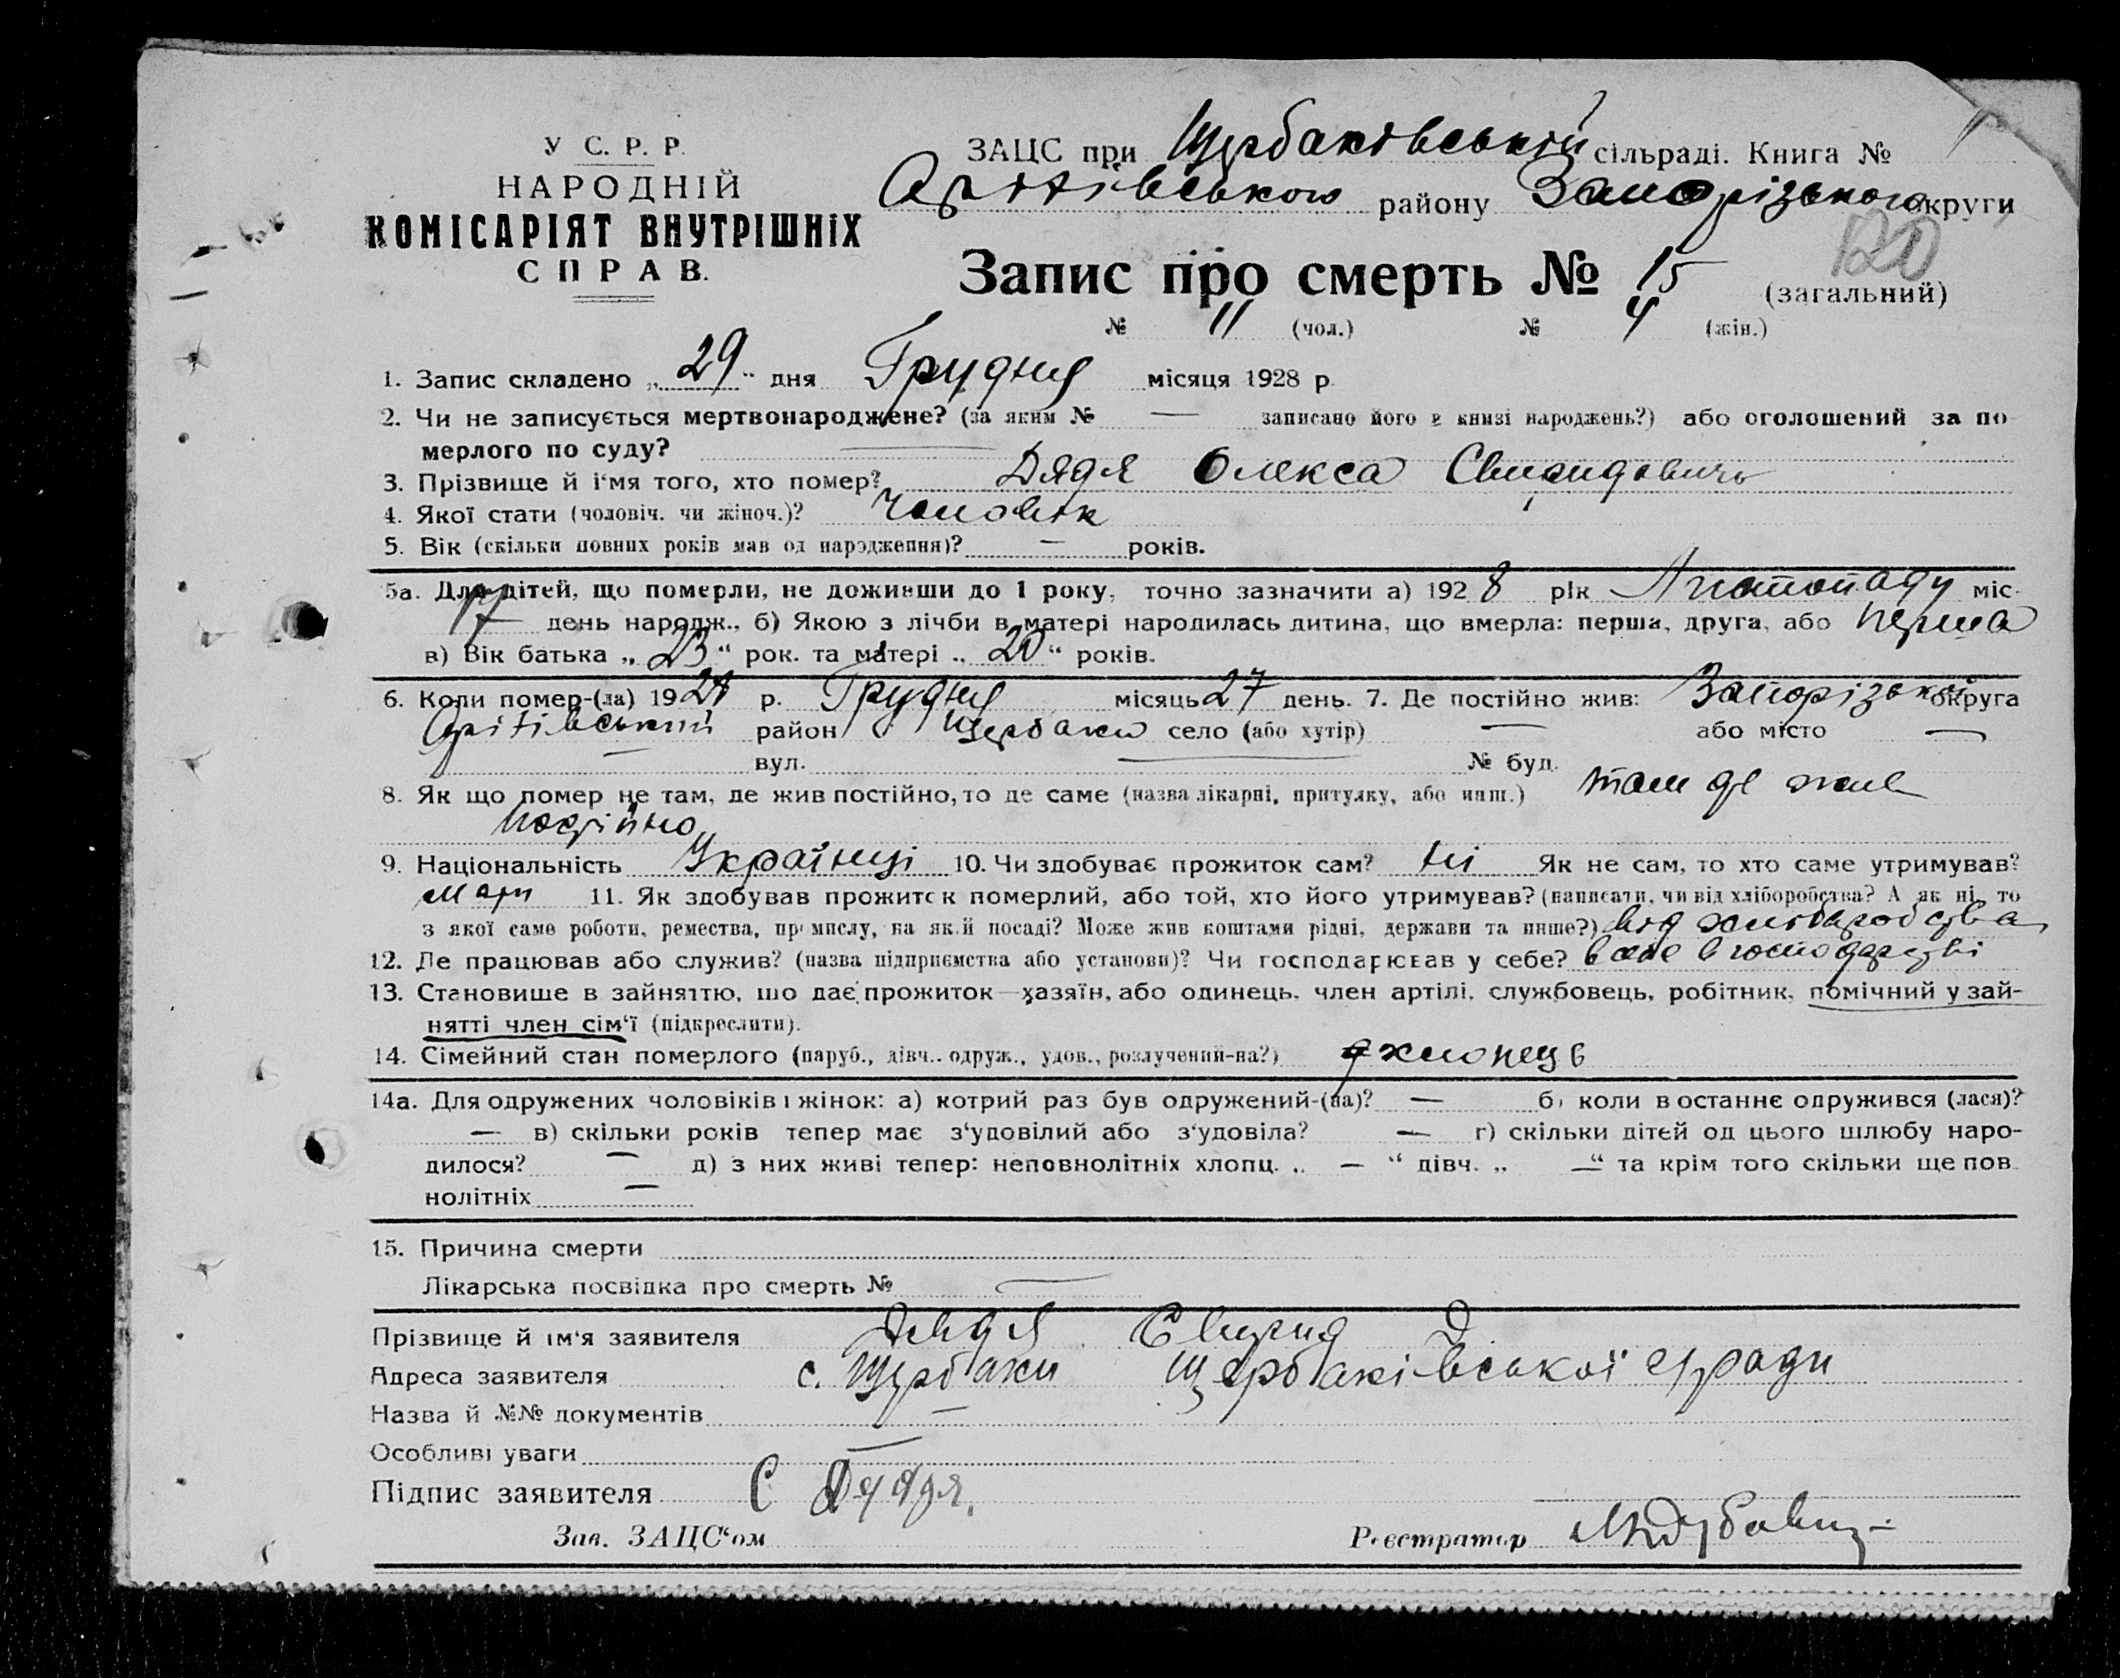 У С. Р. Р.
НАРОДНІЙ
КОМІСАРІЯТ ВНУТРІШНІХ
СПРАВ.
ЗАЦС при Щербаківській сільраді. Книга №
Оріхівського району Запорізького округи
120
Запис про смерть № 15 (загальний)
№ 11 (чол.) № 4 (жін.)
1. Запис складено „ 29 " дня Грудня місяця 1928 р.
2. Чи не записується мертвонароджене? (за яким № — записано його в книзі народжень?) або оголошений за по
мерлого по суду? —
3. Прізвище й і'мя того, хто помер? Дядя Олекса Свиридович
4. Якої стати (чоловіч. чи жіноч.)? Чоловік
5. Вік (скільки повних років мав од народження)? — років.
5а. Для дітей, що померли, не доживши до 1 року, точно зазначити а) 1928 рік Листопаду міс.
17 день народж., б) Якою з лічби в матері народилась дитина, що вмерла: перша, друга, або перша
в) Вік батька „ 23 " рок. та матері „ 20 " років.
6. Коли помер-(ла) 1928 р. Грудня місяць 27 день. 7. Де постійно жив: Запорізької округа
Оріхівський район Щербаки село (або хутір) — або місто —
— вул. — № буд.
8. Як що помер не там, де жив постійно, то де саме (назва лікарні, притулку, або инш.) там де жив
постійно
9. Національність Українці 10. Чи здобуває прожиток сам? ні Як не сам, то хто саме утримував?
мати 11. Як здобував прожиток померлий, або той, хто його утримував? (написати, чи від хліборобства? А як ні, то
з якої саме роботи, ремества, промислу, на якій посаді? Може жив коштами рідні, держави та инше?) від хліборобства
12. Де працював або служив? (назва підприємства або установи)? Чи господарював у себе? в своє в господарстві
13. Становище в зайняттю, що дає прожиток—хазяїн, або одинець, член артілі, службовець, робітник, помічний у зай-
нятті член сім'ї (підкреслити).
14. Сімейний стан померлого (паруб., дівч.. одруж., удов., розлучений-на?) хлопець
14а. Для одружених чоловіків і жінок: а) котрий раз був одружений-(на)? — б) коли в останнє одружився (лася)?
— в) скільки років тепер має з'удовілий або з'удовіла? — г) скільки дітей од цього шлюбу наро-
дилося? — д) з них живі тепер: неповнолітніх хлопц. „ — " дівч. „ —" та крім того скільки ще пов
нолітніх —
15. Причина смерти
Лікарська посвідка про смерть № —
Прізвище й ім'я заявителя Дядя Свирид
Адреса заявителя с. Щербаки Щербаківської с/ради
Назва й №№ документів —
Особливі уваги —
Підпис заявителя С Дядя.
Зав. ЗАЦС'ом Реєстратор